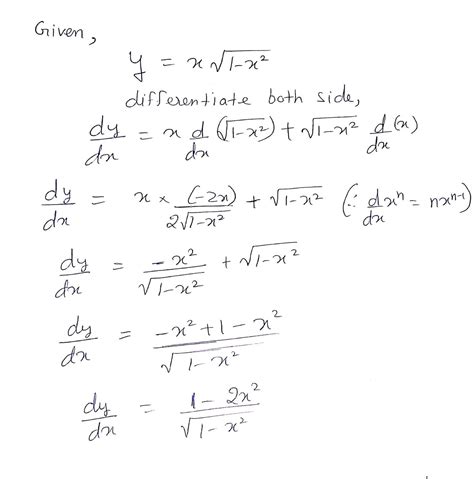 Given,
y = x √1-x²
differentiate both side,
dy/dx = x d/dx (√1-x²) + √1-x² d/dx (x)
dy/dx = x × (-2x)/2√1-x² + √1-x² (∵ d/dx xⁿ = nxⁿ⁻¹)
dy/dx = -x²/√1-x² + √1-x²
dy/dx = -x²+1-x²/√1-x²
dy/dx = 1-2x²/√1-x²